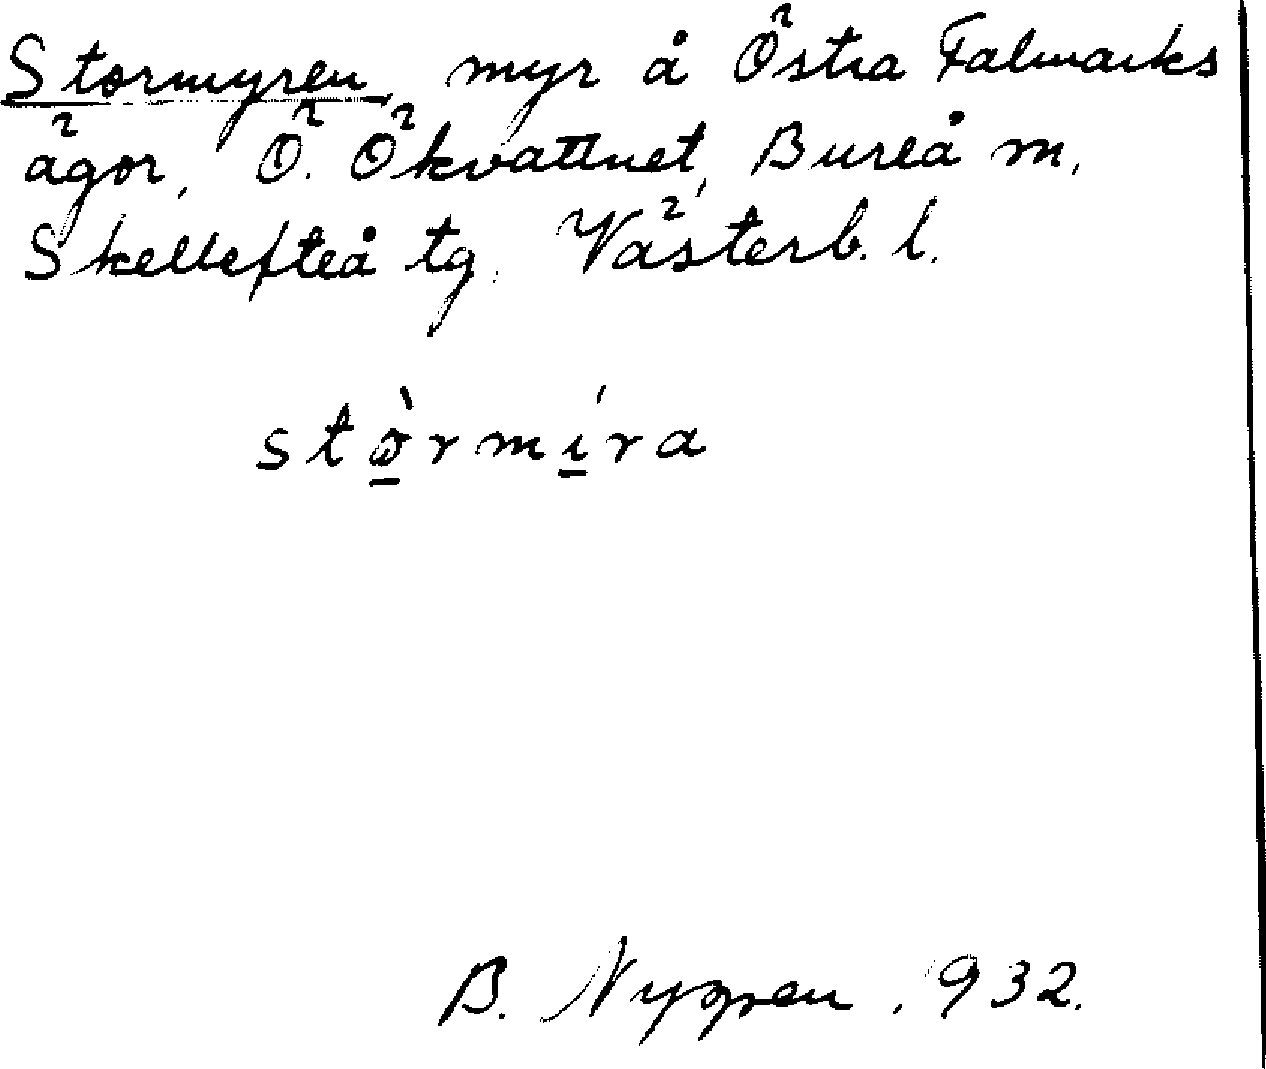 Stormyren, myr å Östra Falmarks
ägor, Ö. Ökvattnet, Bureå m,
Skellefteå tg. Västerb. l.
stòrmíra
B. Nygren, 1932.